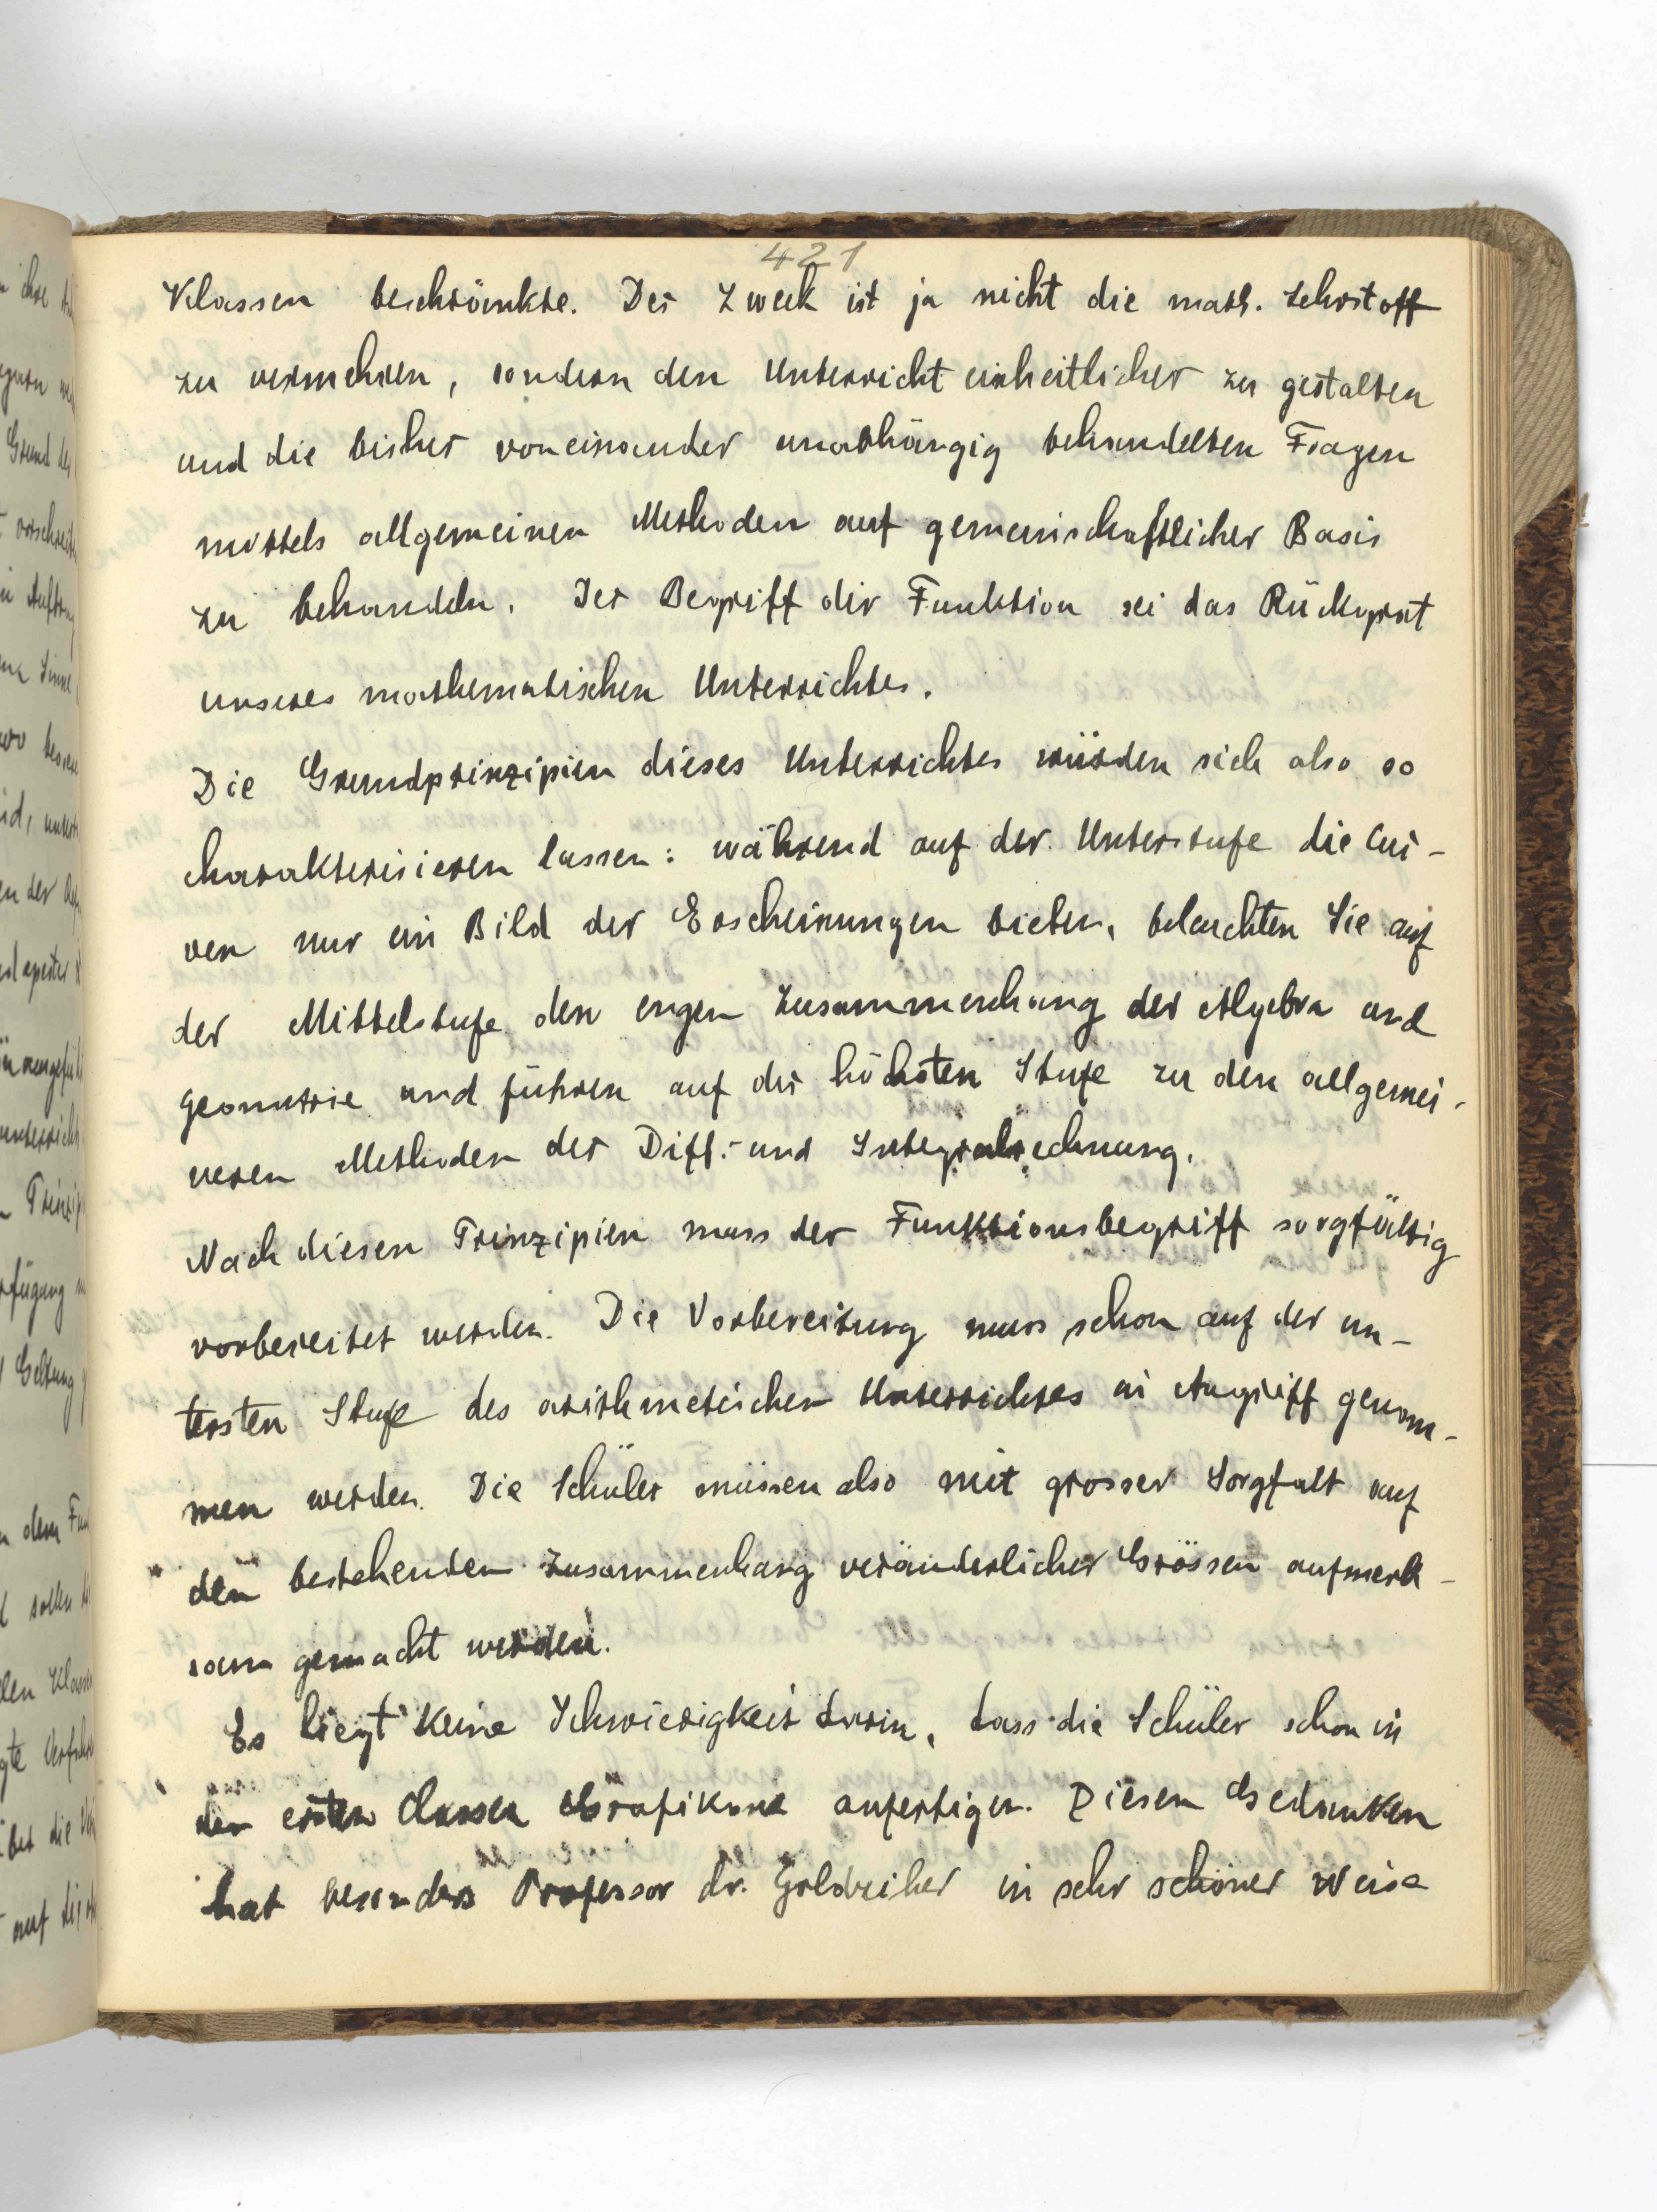 421
Klassen beschränkte. Der Zweck ist ja nicht die math. Lehrstoff
zu vermehren, sondern den Unterricht einheitlicher zu gestalten
und die bisher voneinander unabhängig behandelten Fragen
mittels allgemeinen Methoden auf gemeinschaftlicher Basis
zu behandeln. Der Begriff der Funktion sei das Rückgrat
unseres mathematischen Unterrichtes.
Die Grundprinzipien dieses Unterrichtes würden sich also so
charakterisieren lassen: während auf der Unterstufe die Cur-
ven nur ein Bild der Erscheinungen bieten, beleuchten Sie auf
der Mittelstufe den engen Zusammenhang der Algebra und
Geometrie und führen auf der höchsten Stufe zu den allgemei-
neren Methoden der Diff.- und Integralrechnung.
Nach diesen Prinzipien muss der Funktionsbegriff sorgfältig
vorbereitet werden. Die Vorbereitung muss schon auf der un-
tersten Stufe des arithmetischen Unterrichtes in Angriff genom-
men werden. Die Schüler müssen also mit grosser Sorgfalt auf
den bestehenden Zusammenhang veränderlicher Grössen aufmerk-
sam gemacht werden.
Es liegt keine Schwierigkeit darin, dass die Schüler schon in
den ersten Classen Grafikone anfertigen. Diesen Gedanken
hat besonders Professor dr. Goldziher in sehr schöner Weise